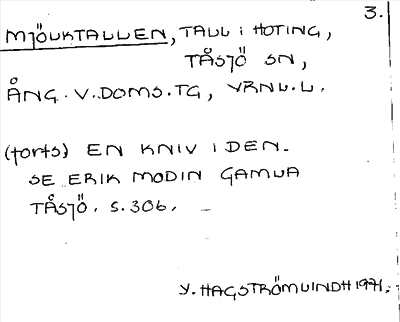 3.
MJÖLKTALLEN, TALL i HOTING,
TÅSJÖ SN,
ÅNG. V. DOMS. TG, VRNL. L.
(forts) EN KNIV I DEN.
SE ERIK MODIN GAMLA
TÅSJÖ. S. 306.
Y. HAGSTRÖM LINDH 1971.